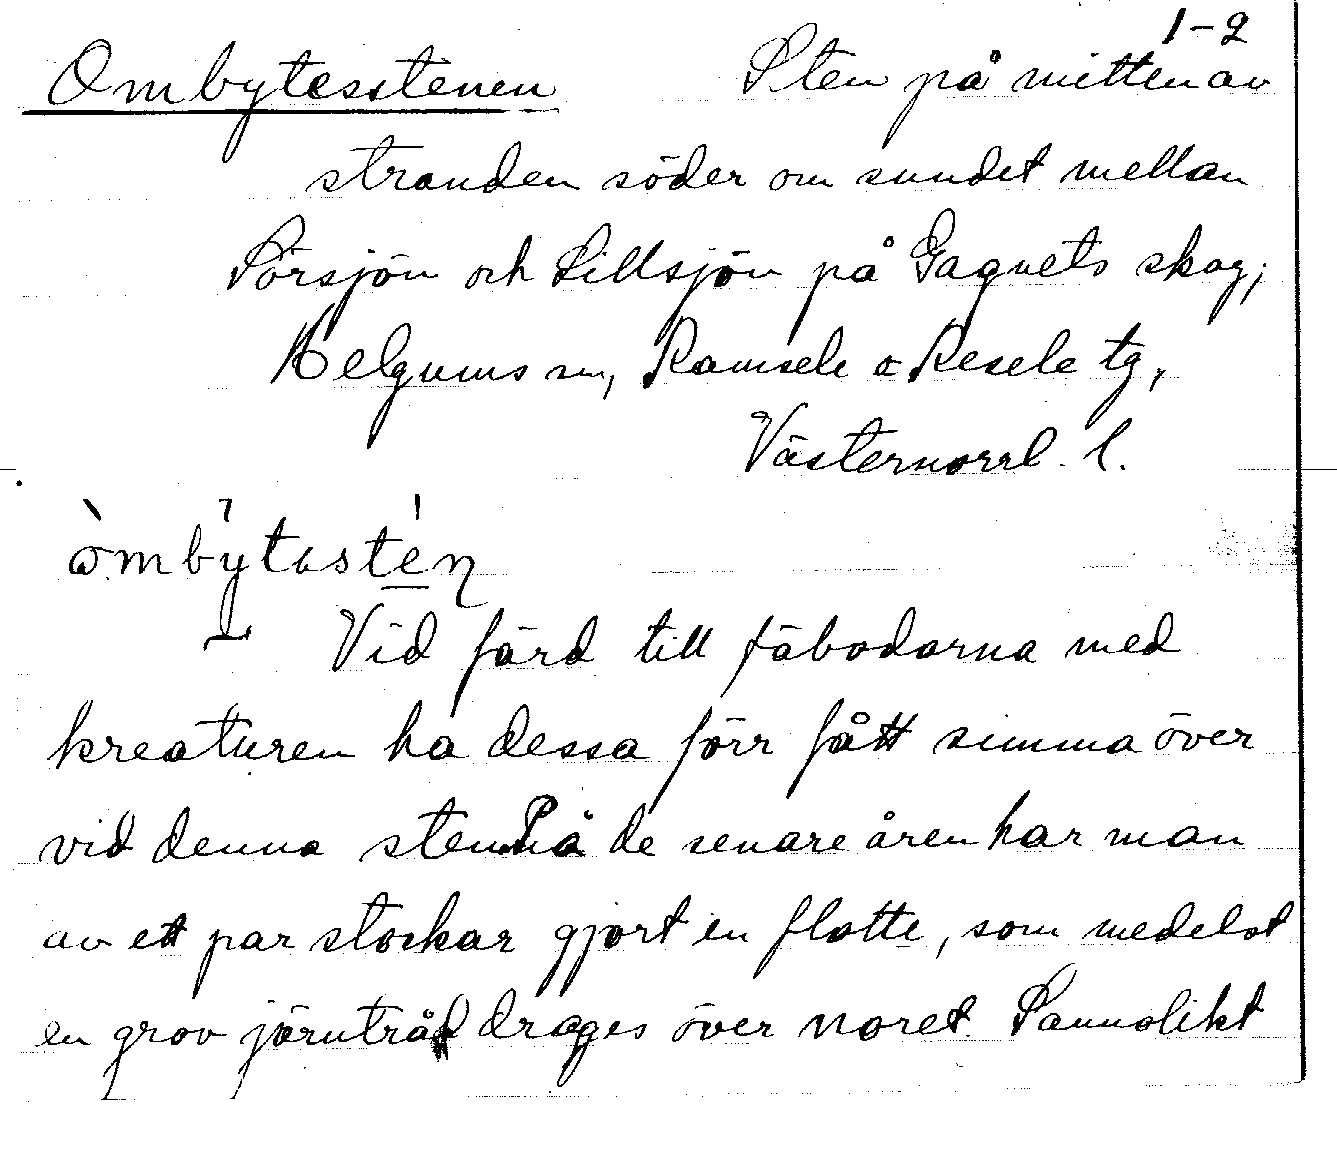 1-2
Ombytesstenen Sten på mitten av
stranden söder om sundet mellan
Sörsjön och Lillsjön på Gagnets skog,
Helgums sn, Ramsele o Resele tg,
Västernorrl. l.
òmbytastén
Vid färd till fäbodarna med
kreaturen ha dessa förr fått simma över
vid denna sten. På de senare åren har man
av ett par stockar gjort en flotte, som medelst
en grov järntråd drages över noret. Sannolikt